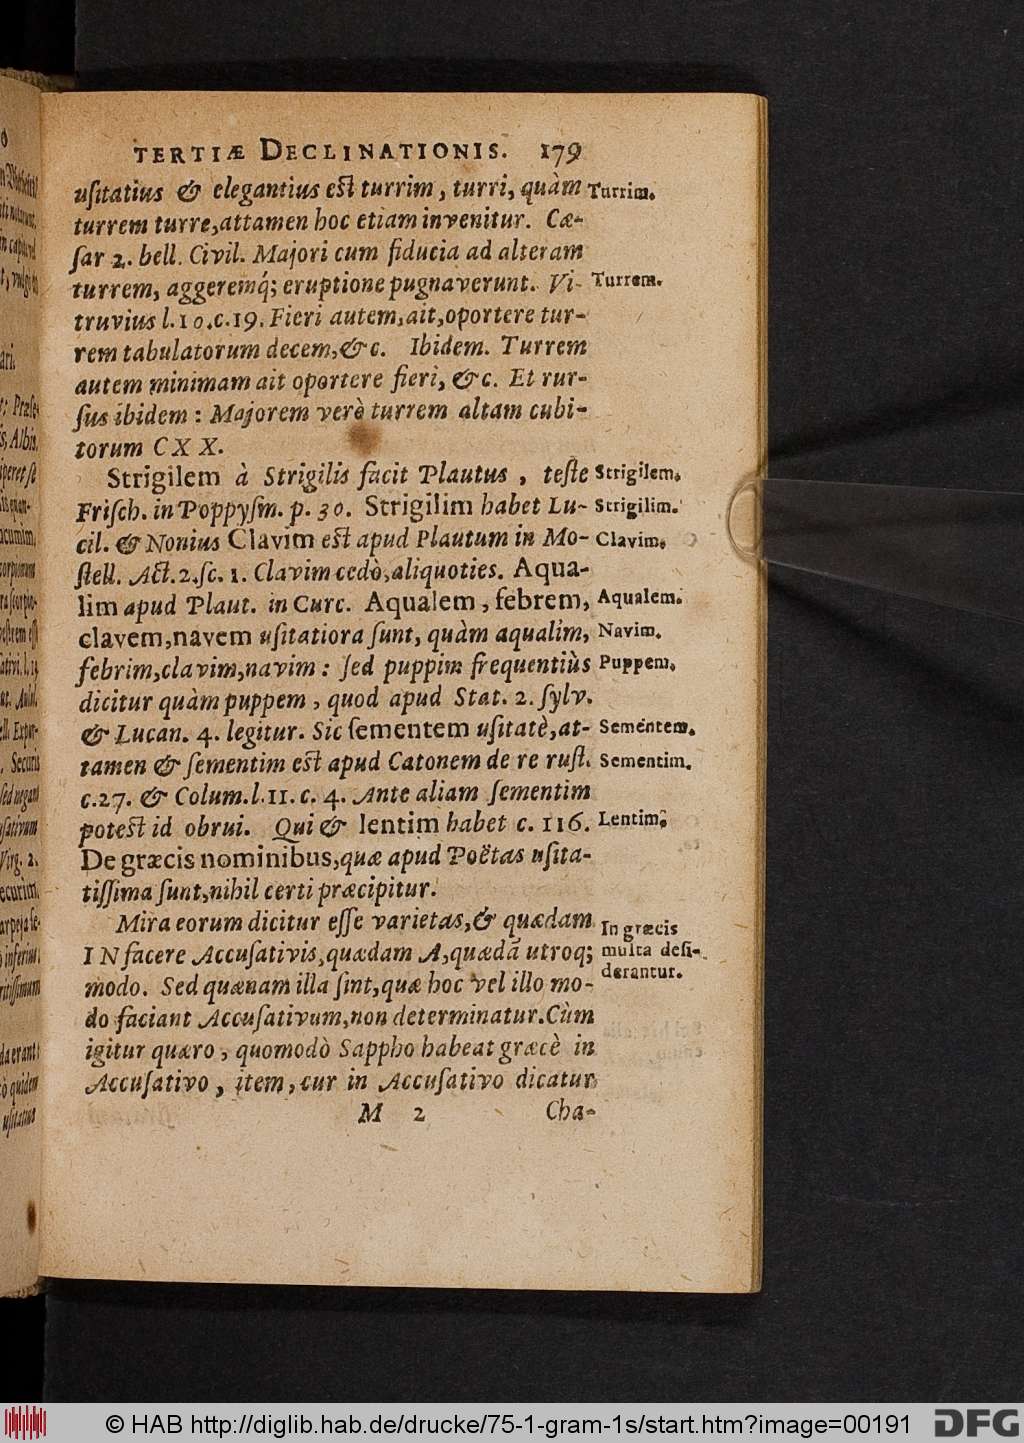 TERTIÆ DECLINATIONIS. 179
uſitatius & elegantius eſt turrim, turri, quàm Turrim.
turrem turre, attamen hoc etiam invenitur. Cæ-
ſar 2. bell. Civil. Majori cum fiducia ad alteram
turrem, aggeremq́; eruptione pugnaverunt. Vi- Turrem.
truvius l.10.c.19. Fieri autem, ait, oportere tur-
rem tabulatorum decem, &c. Ibidem. Turrem
autem minimam ait oportere fieri, &c. Et rur-
ſus ibidem: Majorem verò turrem altam cubi-
torum CXX.
Strigilem à Strigilis facit Plautus, teſte Strigilem.
Friſch. in Poppyſm. p. 30. Strigilim habet Lu- Strigilim.
cil. & Nonius Clavim eſt apud Plautum in Mo- Clavim.
ſtell. Act. 2. ſc. 1. Clavim cedò, aliquoties. Aqua-
lim apud Plaut. in Curc. Aqualem, febrem, Aqualem.
clavem, navem uſitatiora ſunt, quàm aqualim, Navim.
febrim, clavim, navim: ſed puppim frequentiùs Puppem.
dicitur quàm puppem, quod apud Stat. 2. ſylv.
& Lucan. 4. legitur. Sic ſementem uſitatè, at- Sementem.
tamen & ſementim eſt apud Catonem de re ruſt. Sementim.
c.27. & Colum. l.11. c. 4. Ante aliam ſementim
poteſt id obrui. Qui & lentim habet c. 116. Lentim.
De græcis nominibus, quæ apud Poëtas uſita-
tiſſima ſunt, nihil certi præcipitur.
Mira eorum dicitur eſſe varietas, & quædam In græcis
IN facere Accuſativis, quædam A, quædā utroq; multa deſi-
modo. Sed quænam illa ſint, quæ hoc vel illo mo- derantur.
do faciant Accuſativum, non determinatur. Cùm
igitur quæro, quomodò Sappho habeat græcè in
Accuſativo, item, cur in Accuſativo dicatur
M 2 Cha-
© HAB http://diglib.hab.de/drucke/75-1-gram-1s/start.htm?image=00191 DFG